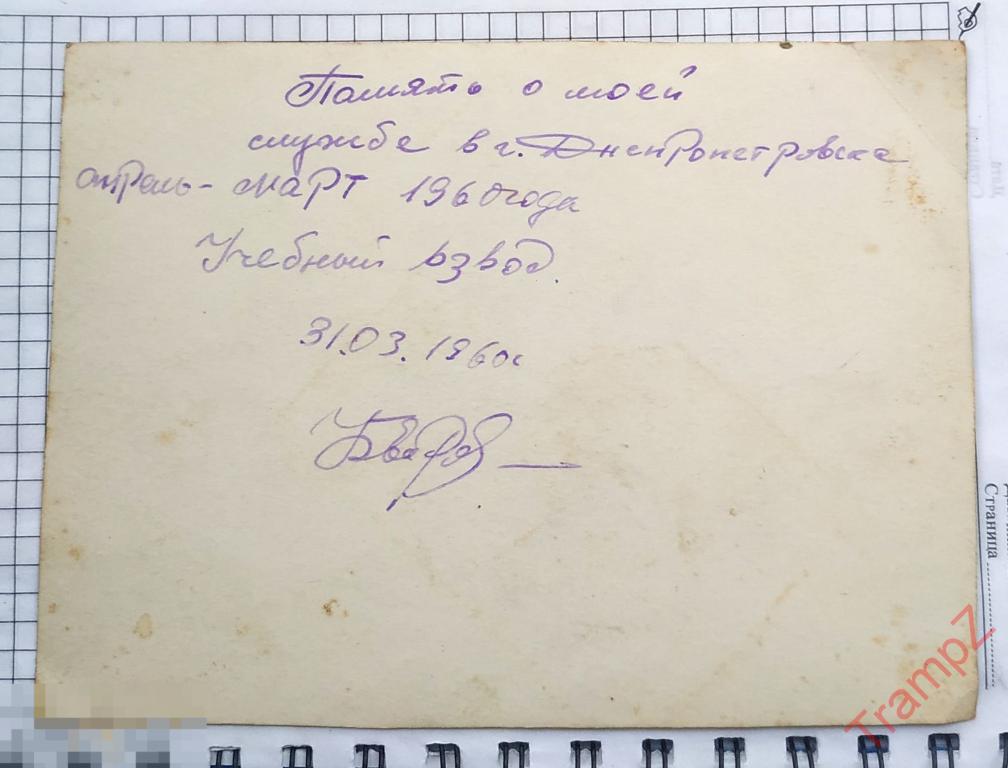 Память о моей
службе в г. Днепропетровске
апрель - март 1960 года
Учебный взвод.
31.03.1960г
Страница
TrampZ